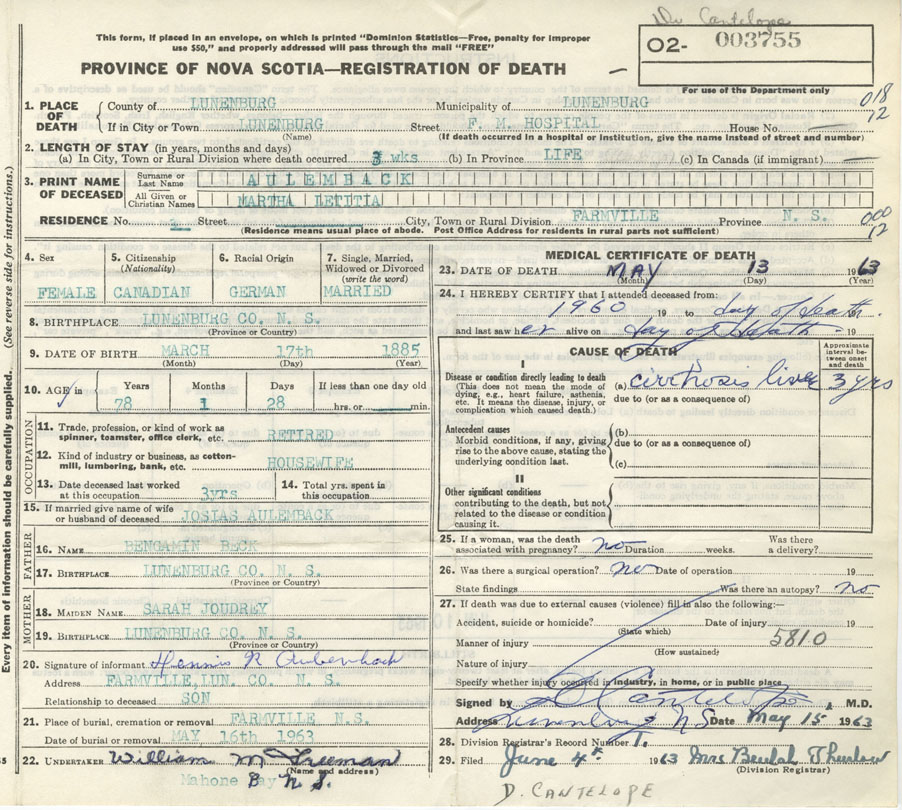 Dr Cantelope
This form, if placed in an envelope, on which is printed “Dominion Statistics—Free, penalty for improper
use $50,” and properly addressed will pass through the mail “FREE”
O2- 003755
PROVINCE OF NOVA SCOTIA—REGISTRATION OF DEATH
For use of the Department only
018
12
1. PLACE OF DEATH County of LUNENBURG Municipality of LUNENBURG
If in City or Town LUNENBURG Street F. M. HOSPITAL House No.
(Name) (If death occurred in a hospital or institution, give the name instead of street and number)
2. LENGTH OF STAY (in years, months and days)
(a) In City, Town or Rural Division where death occurred 3 wks. (b) In Province LIFE (c) In Canada (if immigrant)
3. PRINT NAME OF DECEASED Surname or Last Name AULEMBACK
All Given or Christian Names MARTHA LETITIA
RESIDENCE No. Street City, Town or Rural Division FARMVILLE Province N. S.
(Residence means usual place of abode. Post Office Address for residents in rural parts not sufficient)
000
12
(See reverse side for instructions.)
Every item of information should be carefully supplied.
4. Sex 5. Citizenship (Nationality) 6. Racial Origin 7. Single, Married, Widowed or Divorced (write the word)
FEMALE CANADIAN GERMAN MARRIED
8. BIRTHPLACE LUNENBURG CO. N. S.
(Province or Country)
9. DATE OF BIRTH MARCH 17th 1885
(Month) (Day) (Year)
10. AGE in Years Months Days If less than one day old
78 1 28 hrs. or min.
OCCUPATION
11. Trade, profession, or kind of work as spinner, teamster, office clerk, etc. RETIRED
12. Kind of industry or business, as cotton-mill, lumbering, bank, etc. HOUSEWIFE
13. Date deceased last worked at this occupation 3yrs 14. Total yrs. spent in this occupation
15. If married give name of wife or husband of deceased JOSIAS AULEMBACK
FATHER
16. NAME BENGAMIN BECK
17. BIRTHPLACE LUNENBURG CO. N. S.
(Province or Country)
MOTHER
18. MAIDEN NAME SARAH JOUDREY
19. BIRTHPLACE LUNENBURG CO. N. S.
(Province or Country)
20. Signature of informant
Address FARMVILLE,LUN. CO. N. S.
Relationship to deceased SON
21. Place of burial, cremation or removal FARMVILLE N.S.
Date of burial or removal MAY 16th 1963
22. UNDERTAKER William M Freeman
(Name and address)
Mahone Bay N. S.
MEDICAL CERTIFICATE OF DEATH
23. DATE OF DEATH MAY 13 1963
(Month) (Day) (Year)
24. I HEREBY CERTIFY that I attended deceased from:
1960 19 to day of death 19
and last saw her alive on day of death 19
CAUSE OF DEATH
Approximate interval between onset and death
I
Disease or condition directly leading to death
(This does not mean the mode of dying, e.g., heart failure, asthenia, etc. It means the disease, injury, or complication which caused death.)
(a) cirrhosis liver 3 yrs
due to (or as a consequence of)
Antecedent causes
Morbid conditions, if any, giving rise to the above cause, stating the underlying condition last.
(b)
due to (or as a consequence of)
(c)
II
Other significant conditions
contributing to the death, but not related to the disease or condition causing it.
25. If a woman, was the death associated with pregnancy? no Duration weeks. Was there a delivery?
26. Was there a surgical operation? no Date of operation 19
State findings Was there an autopsy? no
27. If death was due to external causes (violence) fill in also the following:—
Accident, suicide or homicide? Date of injury 19
(State which)
Manner of injury 5810
(How sustained)
Nature of injury
Specify whether injury occurred in industry, in home, or in public place
Signed by D Cantelope M.D.
Address Lunenburg N S Date May 15 1963
28. Division Registrar's Record Number 1.
29. Filed June 4th 1963 Mrs Beulah Thurlow
(Division Registrar)
D. CANTELOPE